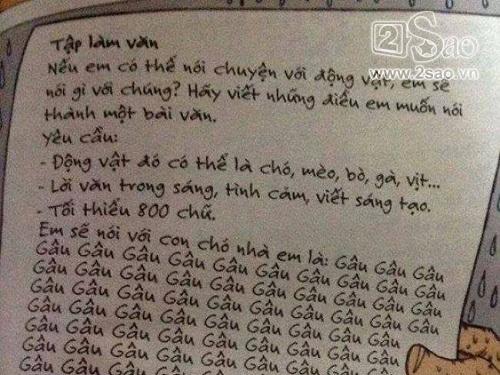 2Sao
www.2sao.vn
Tập làm văn
Nếu em có thể nói chuyện với động vật, em sẽ
nói gì với chúng? Hãy viết những điều em muốn nói
thành một bài văn.
Yêu cầu:
- Động vật đó có thể là chó, mèo, bò, gà, vịt...
- Lời văn trong sáng, tình cảm, viết sáng tạo.
- Tối thiểu 800 chữ.
Em sẽ nói với con chó nhà em là: Gâu Gâu Gâu
Gâu Gâu Gâu Gâu Gâu Gâu Gâu Gâu Gâu Gâu
Gâu Gâu Gâu Gâu Gâu Gâu Gâu Gâu Gâu Gâu
Gâu Gâu Gâu Gâu Gâu Gâu Gâu Gâu Gâu Gâu
Gâu Gâu Gâu Gâu Gâu Gâu Gâu Gâu Gâu Gâu
Gâu Gâu Gâu Gâu Gâu Gâu Gâu Gâu Gâu
Gâu Gâu Gâu Gâu Gâu Gâu Gâu Gâu
Gâu Gâu Gâu Gâu Gâu Gâu Gâu Gâu